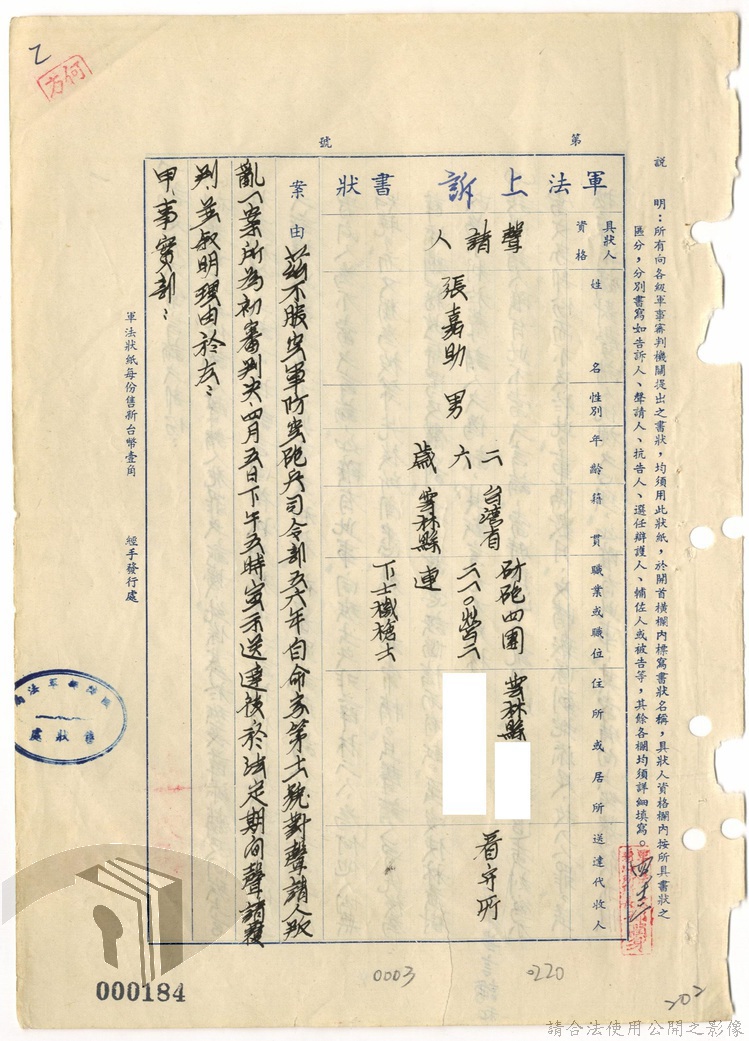 乙
何方
第　　號
說　明：所有向各級軍事審判機關提出之書狀，均須用此狀紙，於開首橫欄內標寫書狀名稱，具狀人資格欄內按所具書狀之
區分，分別書寫如告訴人、聲請人、抗告人、選任辯護人、輔佐人或被告等，其餘各欄均須詳細填寫。
軍法上訴書狀
具狀人資格
聲請人
姓名
張嘉助
性別
男
年齡
二六歲
籍貫
台灣省
雲林縣
職業或職位
砲四團
二二〇營二連
下士機槍士
住所或居所
雲林縣
送達代收人
看守所
案由
茲不服空軍防空砲兵司令部五六年自命字第十一號對聲請人叛
亂一案所為初審判決四月五日下午五時宣示送達後於法定期間聲請覆
判，茲敘明理由於左：
甲、事實部：
軍法狀紙每份售新台幣壹角　經手發行處
國防部軍法局
售狀處
000184
0003
0220
202
請合法使用公開之影像